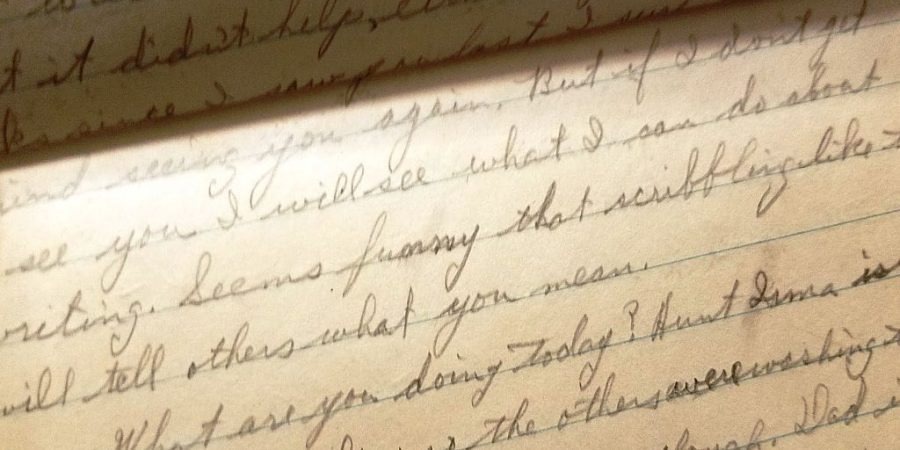 t it didn't help,
since I saw you last I just
mind seeing you again. But if I don't get
see you I will see what I can do about
writing. Seems funny that scribbling like
will tell others what you mean.
What are you doing today? Aunt Isma is
the others were washing
Dad